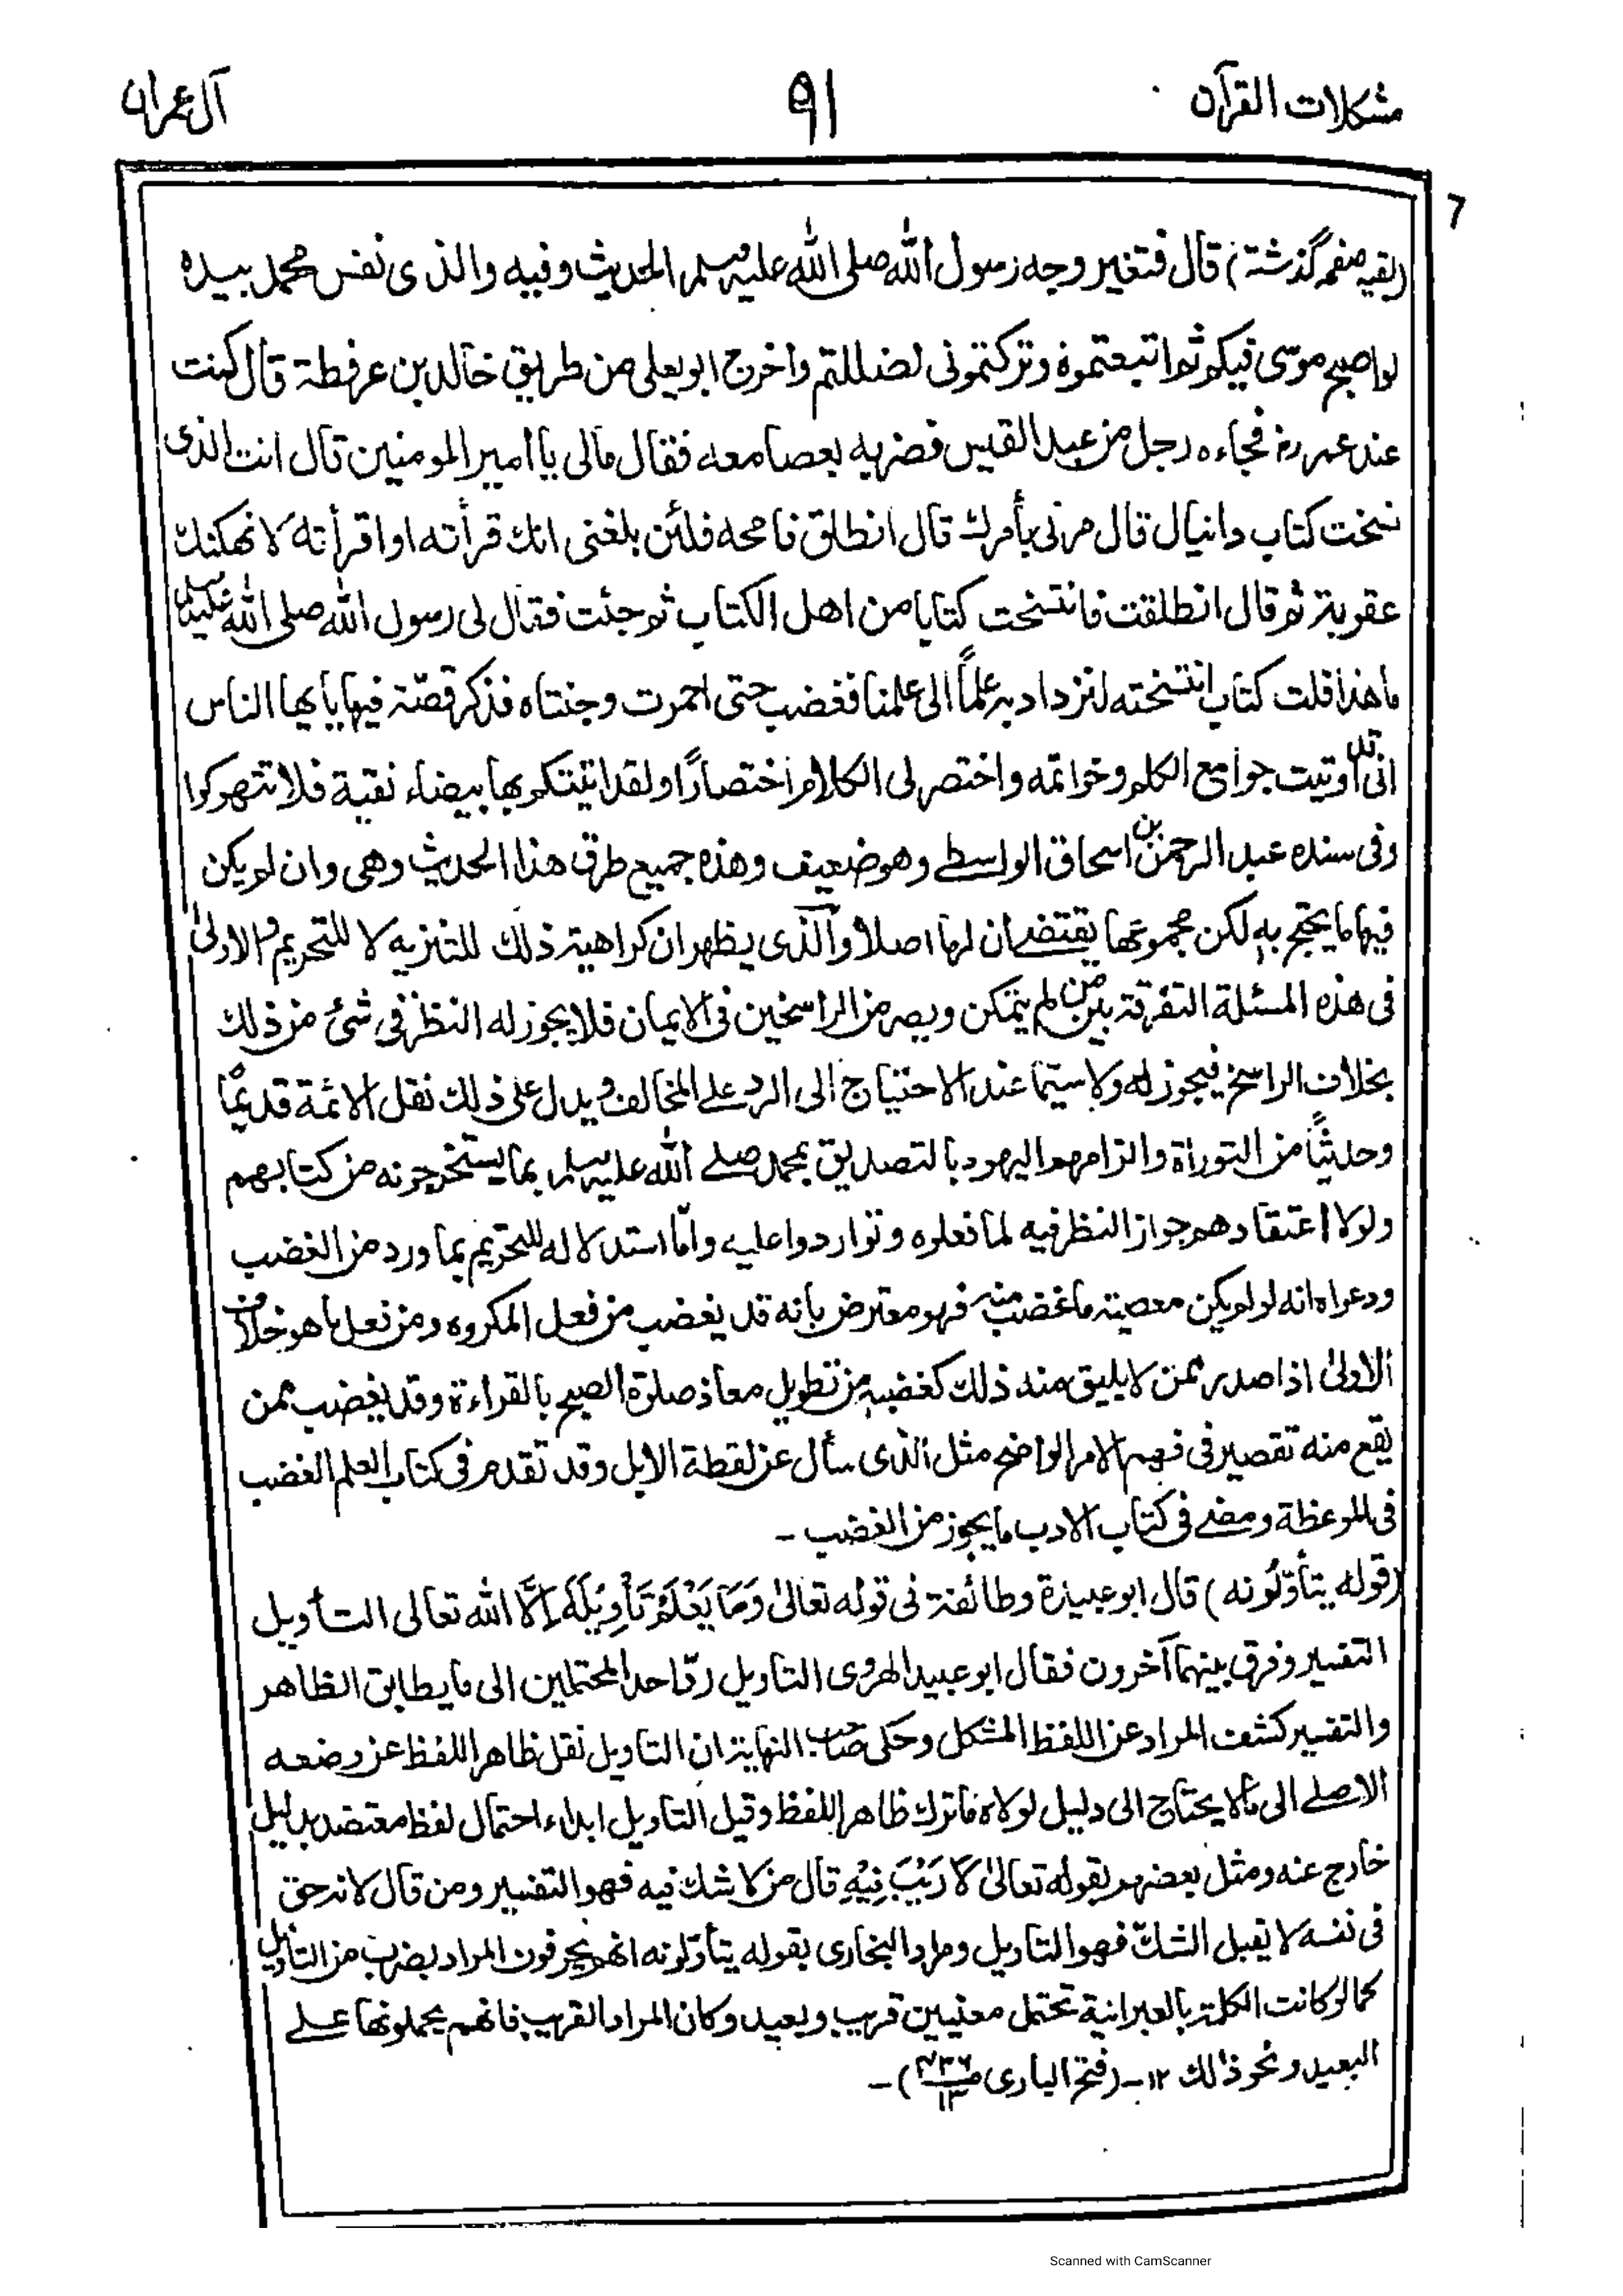 مشكلات القرآن
٩١
آل عمران
(بقيہ صفحہ گذشتہ) قال فتغير وجه رسول الله صلى الله عليه وسلم الحديث وفيه والذى نفس محمد بيده
لو اصبح موسى فيكم ثم اتبعتموه وتركتمونى لضللتم واخرج ابو يعلى من طريق خالد بن عرفطة قال كنت
عند عمر رض فجاءه رجل من عبد القيس فضربه بعصا معه فقال مالى يا امير المومنين قال انت الذى
نسخت كتاب دانيال قال مرنى بأمرك قال انطلق فامحه فلئن بلغنى انك قرأته او اقرأته لانهكنك
عقوبة ثم قال انطلقت فانتسخت كتابا من اهل الكتاب ثم جئت فقال لى رسول الله صلى الله عليه وسلم
ما هذا قلت كتاب انتسخته لنزداد به علماً الى علمنا فغضب حتى احمرت وجنتاه فذكر قصة فيها يا يها الناس
انى قد اوتيت جوامع الكلم وخواتمه واختصر لى الكلام اختصارًا ولقد اتيتكم بها بيضاء نقية فلا تتهوكوا
وفى سنده عبد الرحمن بن اسحاق الواسطے وهو ضعيف وهذه جميع طرق هذا الحديث وهى وان لم يكن
فيها ما يحتج به لكن مجموعها يقتضے ان لها اصلا والذى يظهر ان كراهية ذلك للتنزيه لا للتحريم والاولىٰ
فى هذه المسئلة التفرقة بين من لم يتمكن ويصر من الراسخين فى الايمان فلا يجوز له النظر فى شئ من ذلك
بخلاف الراسخ فيجوز له ولا سيّما عند الاحتياج الى الرد على المخالف ويدل على ذلك نقل الائمة قديمًا
وحديثًا من التوراة والزامهم اليهود بالتصديق بمحمد صلے الله عليه وسلم بما يستخرجونه من كتابهم
ولولا اعتقادهم جواز النظر فيه لما فعلوه وتواردوا عليه وامّا استدلاله للتحريم بما ورد من الغضب
ودعواه انه لو لم يكن معصية ما غضب منه فهو معترض بانه قد يغضب من فعل المكروه ومن فعل ما هو خلاف
الاولىٰ اذا صدر ممن لا يليق منه ذلك كغضبه من تطويل معاذ صلوة الصبح بالقراءة وقد يغضب ممن
يقع منه تقصير فى فهم الامر الواضح مثل الذى سأل عن لقطة الابل وقد تقدم فى كتاب العلم الغضب
فى الموعظة ومضے فى كتاب الادب ما يجوز من الغضب -
(قوله يتأوّلونه) قال ابو عبيدة وطائفة فى قوله تعالىٰ وَمَا يَعْلَمُ تَأْوِيْلَهٗ اِلَّا الله تعالى التأويل
التفسير وفرق بينهما آخرون فقال ابو عبيد الهروى التاويل ردّ احد المحتملين الى ما يطابق الظاهر
والتفسير كشف المراد عن اللفظ المشكل وحكى صاحب النهاية ان التاويل نقل ظاهر اللفظ عن وضعه
الاصلے الى ما لا يحتاج الى دليل لولاه ما ترك ظاهر اللفظ وقيل التاويل ابداء احتمال لفظ معتضد بدليل
خارج عنه ومثل بعضهم بقوله تعالىٰ لَا رَيْبَ فِيْهِ قال من لا شك فيه فهو التفسير ومن قال لانه حق
فى نفسه لا يقبل الشك فهو التاويل ومراد البخارى بقوله يتأوّلونه انهم يحرفون المراد بضرب من التاويل
كما لو كانت الكلمة بالعبرانية تحتمل معنيين قريب وبعيد وكان المراد القريب فانهم يحملونها علے
البعيد ونحو ذالك ١٢ -(فتح البارى ص ٤٣٦/١٣) -
Scanned with CamScanner